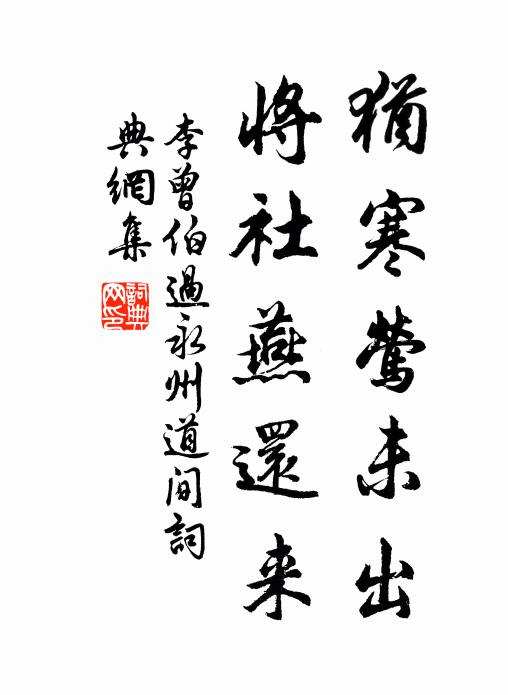 猶寒鶯未出
將社燕還来
李曾伯過永州道间詞
典網集
詞典网印